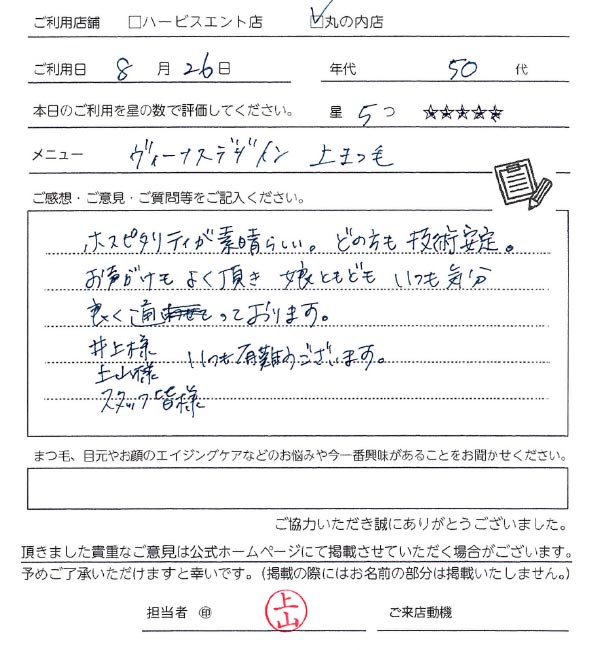 ご利用店舗 □ハービスエント店 ☑丸の内店
ご利用日 8 月 26 日 年代 50 代
本日のご利用を星の数で評価してください。 星 5 つ ☆☆☆☆☆
メニュー ヴィーナスデザイン 上まつ毛
ご感想・ご意見・ご質問等をご記入ください。
ホスピタリティが素晴らしい。どの方も技術安定。
お声がけもよく頂き 娘ともども いつも気分
良く通っております。
井上様
土山様 いつも有難うございます。
スタッフ皆様
まつ毛、目元やお顔のエイジングケアなどのお悩みや今一番興味があることをお聞かせください。
ご協力いただき誠にありがとうございました。
頂きました貴重なご意見は公式ホームページにて掲載させていただく場合がございます。
予めご了承いただけますと幸いです。(掲載の際にはお名前の部分は掲載いたしません。)
担当者 ㊞ 上山 ご来店動機